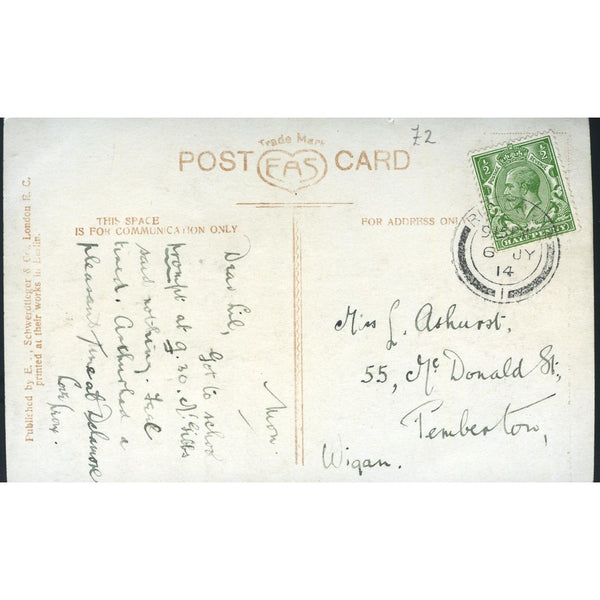 £2
Trade Mark
POST EAS CARD
THIS SPACE
IS FOR COMMUNICATION ONLY
FOR ADDRESS ONL
½ ½
HALFPENNY
6 JY
14
Published by E. S., Schwerdtfeger & Co., London E. C.
printed at their works in Berlin.
Mon.
Dear Lil,
Got to school
at 9.30. Mr Gibbs
said nothing. Feel
tired. Arthur had a
pleasant time at Delamere
Love from.
Miss L. Ashurst.
55, Mc Donald St,
Pemberton,
Wigan.